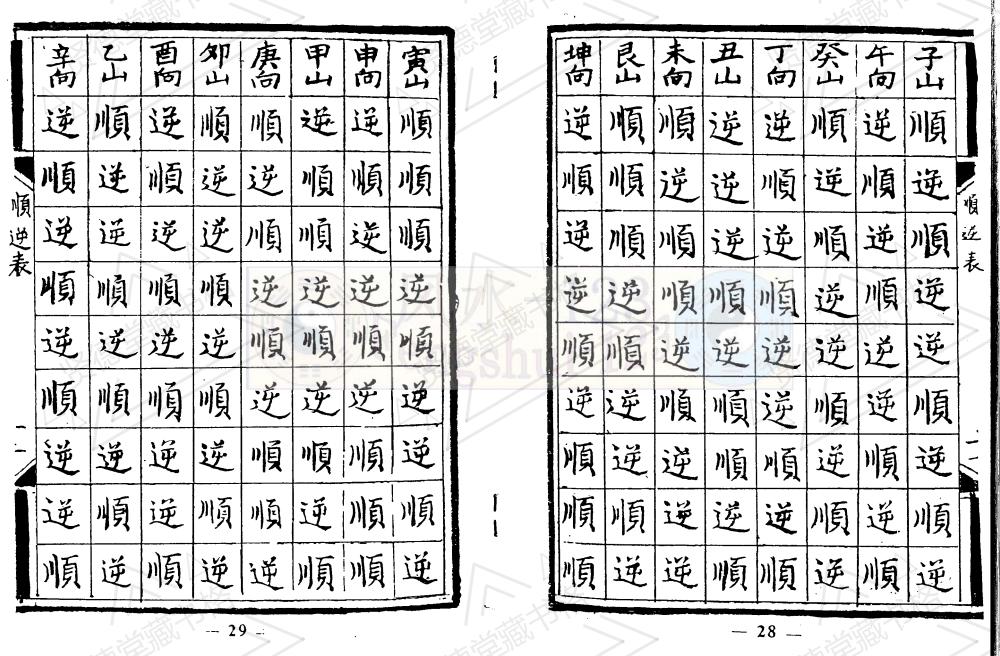 順逆表
子山順逆順逆逆順逆順逆
午向逆順逆順逆逆順逆順
癸山順逆順逆逆順逆順逆
丁向逆順逆順逆逆順逆順
丑山逆逆逆順逆順順逆順
未向順逆順順逆順逆逆逆
艮山順順順逆順逆逆順逆
坤向逆順逆逆順逆順順順
— 28 —
寅山順順順逆順逆逆順逆
申向逆順逆逆順逆順順順
甲山逆順順逆順逆順逆順
庚向順逆順逆順逆順順逆
卯山順逆逆順逆順逆順逆
酉向逆順逆順逆順逆逆順
乙山順逆逆順逆順逆順逆
辛向逆順逆順逆順逆逆順
順逆表
— 29 —